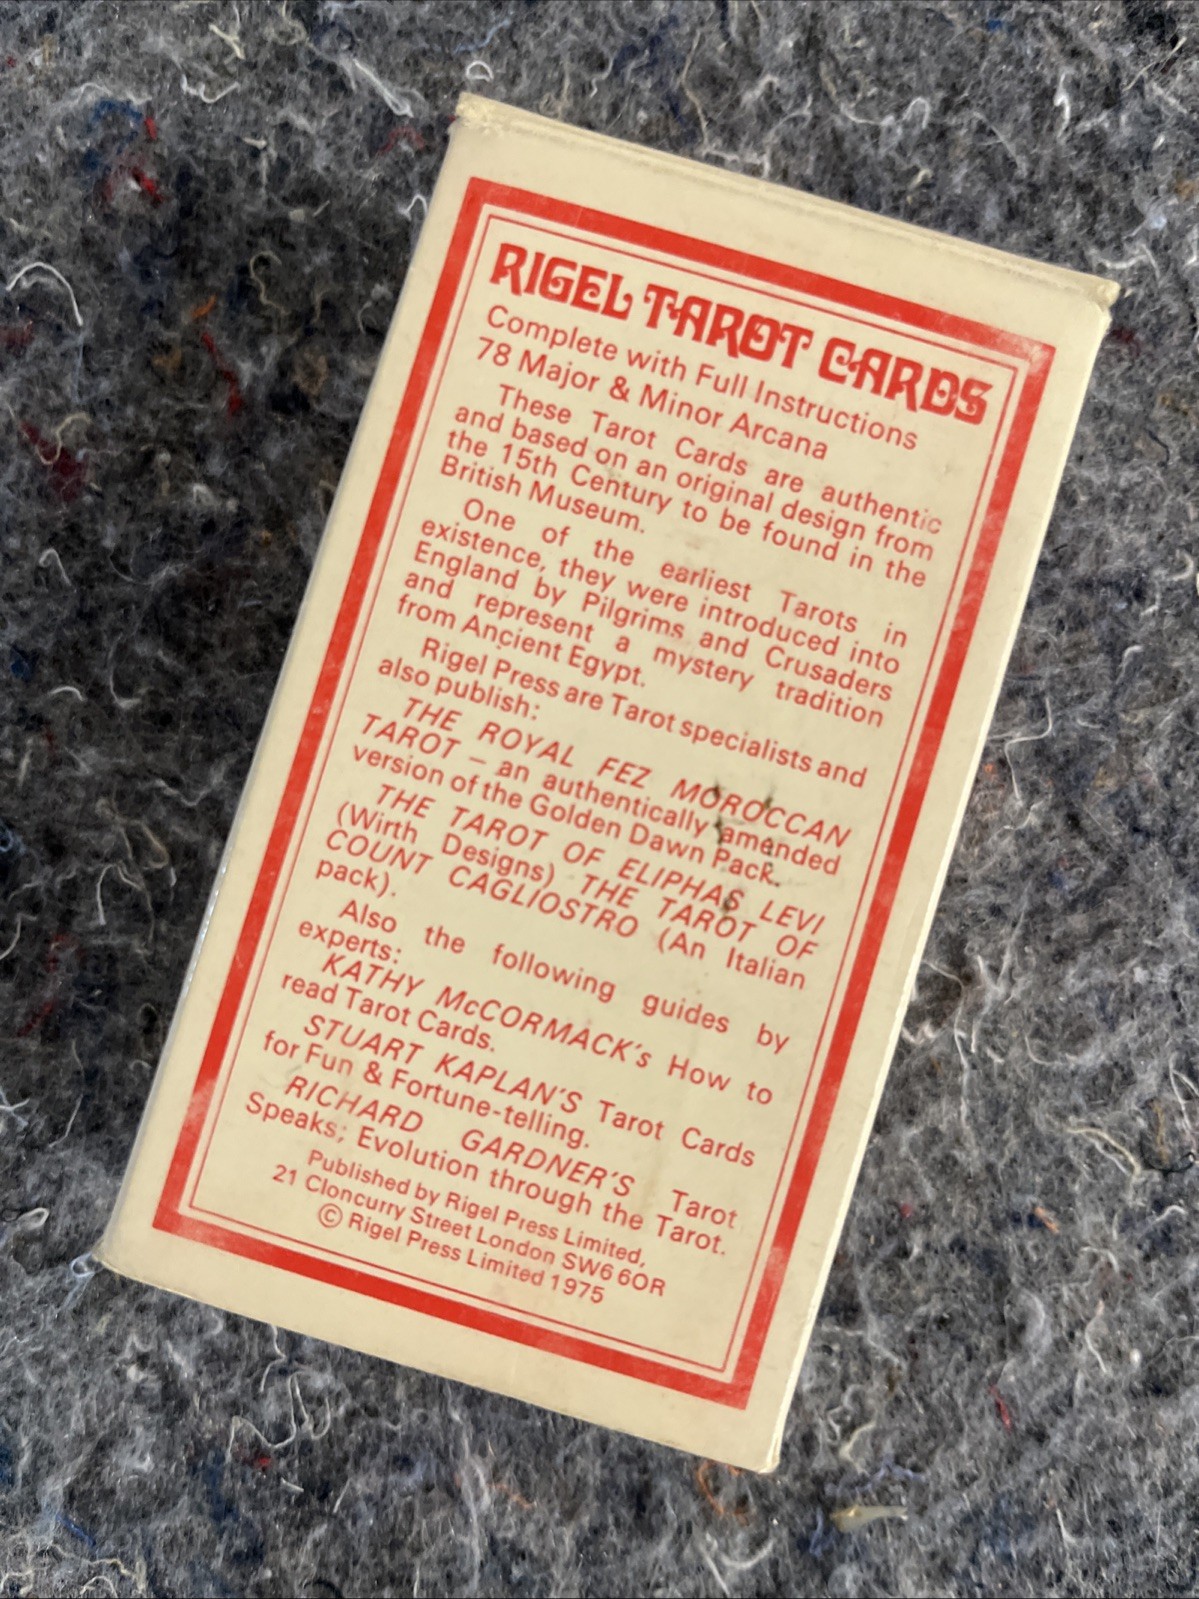 RIGEL TAROT CARDS
Complete with Full Instructions
78 Major & Minor Arcana
These Tarot Cards are authentic
and based on an original design from
the 15th Century to be found in the
British Museum.
One of the earliest Tarots in
existence, they were introduced into
England by Pilgrims and Crusaders
and represent a mystery tradition
from Ancient Egypt.
Rigel Press are Tarot specialists and
also publish:
THE ROYAL FEZ MOROCCAN
TAROT – an authentically amended
version of the Golden Dawn Pack.
THE TAROT OF ELIPHAS LEVI
(Wirth Designs) THE TAROT OF
COUNT CAGLIOSTRO (An Italian
pack).
Also the following guides by
experts:
KATHY McCORMACK's How to
read Tarot Cards.
STUART KAPLAN'S Tarot Cards
for Fun & Fortune-telling.
RICHARD GARDNER'S Tarot
Speaks; Evolution through the Tarot.
Published by Rigel Press Limited,
21 Cloncurry Street London SW6 6OR
© Rigel Press Limited 1975